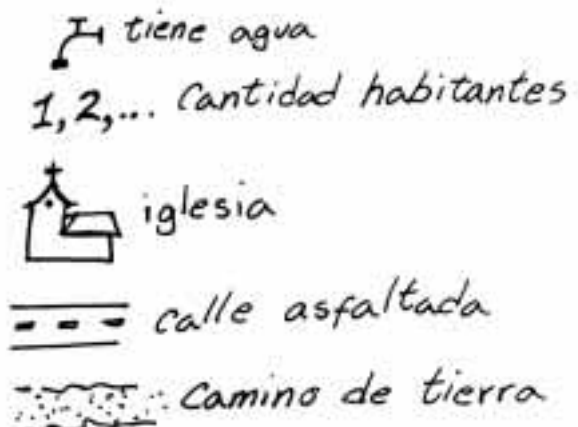 tiene agua
1,2,... Cantidad habitantes
iglesia
calle asfaltada
Camino de tierra